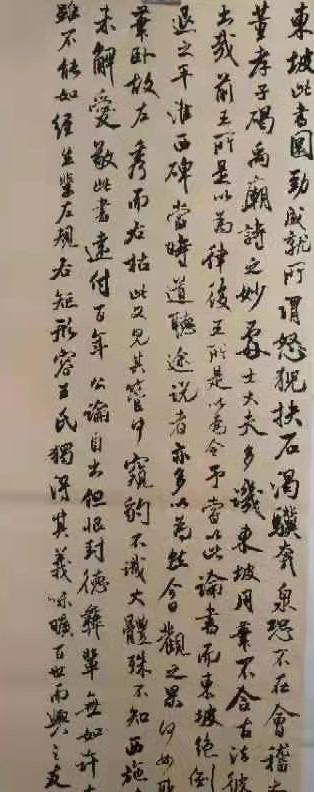 東坡此書圓勁成就所謂怒猊抉石渴驥奔泉恐不在會稽之
董孝子碣禹廟詩之妙處士大夫多譏東坡用筆不合古法彼
出哉前王所是以為律後王所是以為令予嘗以此論書而東坡絕倒
退之平淮西碑當時道聽途說者亦多以為然今日觀之果何如耶
筆臥故左秀而右枯此又見其管中窺豹不識大體殊不知西施
未解愛敬此書遠付百年公論自出但恨封德彝輩無如許
雖不能如經生輩左規右矩形容王氏獨得其義味曠百世而與之友